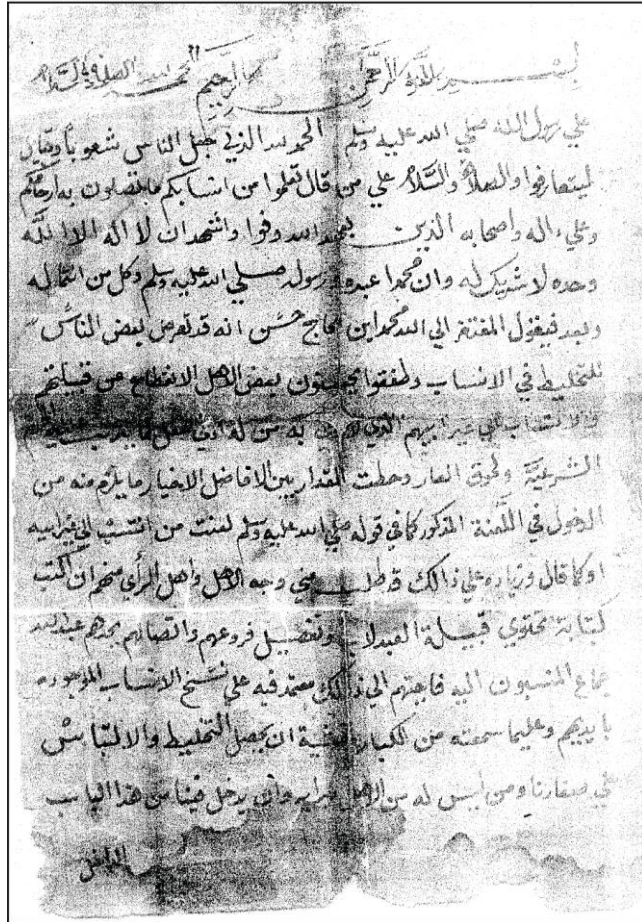 بسم الله الرحمن الرحيم الحمد لله والصلاة والسلام
علي رسول الله صلي الله عليه وسلم الحمد لله الذي جعل الناس شعوبا وقبايل
ليتعارفوا والصلاة والسلام علي من قال تعلموا من انسابكم ما تصلون به ارحامكم
وعلي اله واصحابه الذين بعهد الله وفوا واشهد ان لا اله الا الله
وحده لا شريك له وان محمدا عبده ورسوله صلي الله عليه وسلم وكل من انتما له
وبعد فيقول المفتقر الي الله محمد ابن الحاج حسن انه قد تعرض بعض الناس
للتخليط في الانساب وطفقوا بعض الاهل الانقطاع عن قبيلتهم
والانتساب الي غير ابيهم الذي به من له
الشرعية ولحوق العار وحطت المقدار بين الافاضل الاخيار ما يلزم منه من
الدخول في اللعنة المذكور كما في قوله صلي الله عليه وسلم لعنت من انتسب الي غير ابيه
او كما قال وزياده علي ذالك قد طلب مني وجه الاهل واهل الرأي منهم ان اكتب
كتابة تحتوي قبيلة العبدلاب وتفصيل فروعهم واتصالهم بجدهم عبد الله
جماع المنسبون اليه فاجبتهم الي ذالك معتمد فيه علي نسخ الانساب الموجوده
بايديهم وعليما سمعته من الكبار خشية ان يحصل التخليط والالتباس
علي صغارنا ومن ليس له من الاهل درايه وان يدخل فينا من هذا الباب